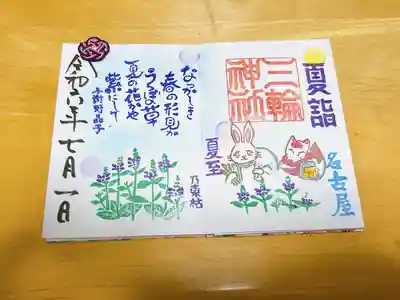 夏詣
三輪
神社
名古屋
夏至
乃東枯
なつかしき
春の形見か
うつぼ草
夏の花かや
紫にして
与謝野晶子
令和六年七月一日